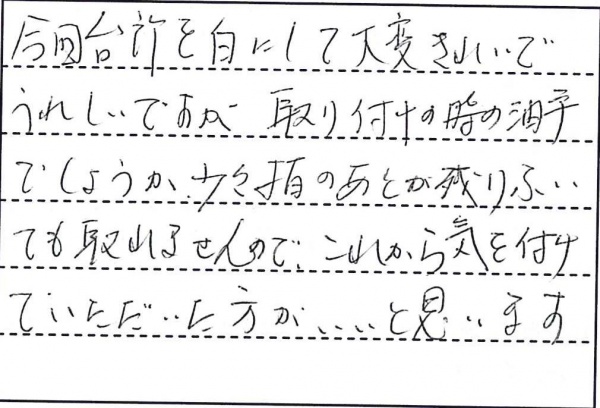 今回台所を白にして大変きれいで
うれしいですが 取り付けの時の油手
でしょうか、少々指のあとが残りふい
ても取れませんので、これから気を付け
ていただいた方がいいと思います